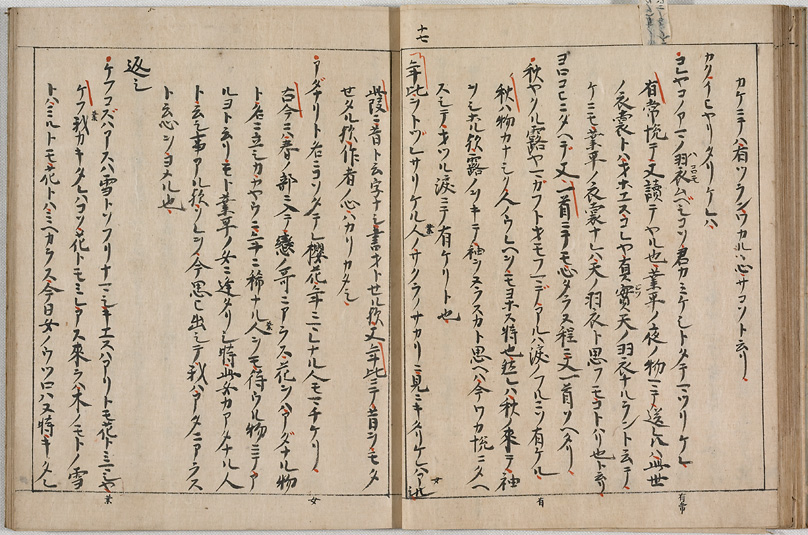 十七
カケミチハ有ツランワカルハ心サコソト云リ
カクイヒヤリタリケレハ
コレヤコノアマノ羽衣ムヘシコソ君カミケシトタテマツリケレ
ハコロモ
有常
有常悦テ又讀テヤル也業平ノ夜ノ物マテ送レルハ此世
ノ衣裳トハオホエスコレヤ真實天ノ羽衣ナルラント云テ
ケニモ業平ノ衣裳ナレハ天ノ羽衣ト思フモコトハリ也ト云リ
ヨロコヒニタヘテ又一首ニテモ心タラヌ程ニ又一首ソヘタリ
秋ヤクル露ヤマカフトオモフマテアルハ涙ノフルニソ有ケル
有
秋ハ物カナシミノウヘヲモヨホス時也サレハ秋ノ来テ袖
露ノヲキテ袖ヲヌラスカト思ヘハ今ワカ悦ニタヘ
スシテオツル涙ニテ有ケリト也
年此ヲトツレサリケル人ノサクラノサカリニ見ニキタリケレハ
業
女
此段ニ昔ト云字ナシ書オトセル歟又年此ニテ昔ヲモタ
せタル歟作者ノ心ハカリカタシ
アタナリト名ニコソタテレ櫻花年ニマレナル人モマチケリ
女
古今ニハ春ノ部ニ入テ戀ノ哥ニアラス花ヲハアダナル物
ト名ニ立シカカヤウニ年ニ稀ナル人ヲモ待ウル物ニテア
業
ルヨト云リモト業平ノ女ニ逢タリシ時此女カアタナル人
ト云シ事アル歟ソレヲ今思ヒ出シテ我ハアタニアラス
ト云心ヲヨメル也
返シ
ケフコズハアスハ雪トソフリナマシキエスハアリトモ花トミマシヤ
業
ケフ我カキタレハコソ花トモミレアス来ラハ木ノモトノ雪
業
トハミルトモ花トハミヘカラス今日女ノウツロハヌ時キタレ